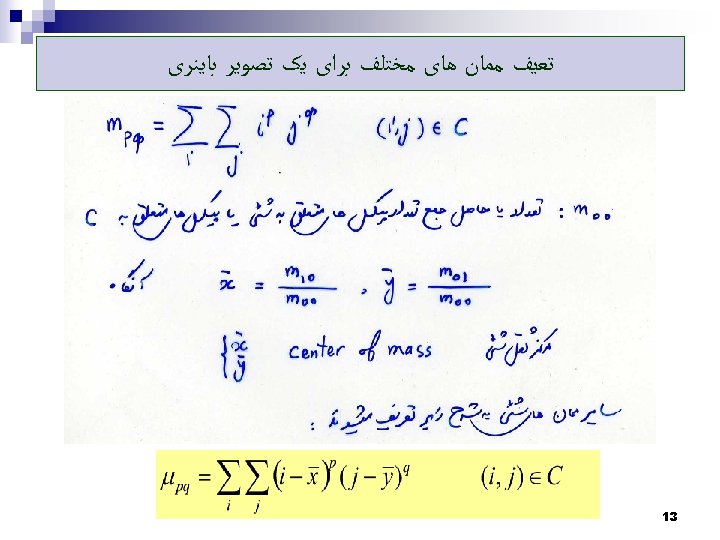 تعیف ممان های مختلف برای یک تصویر باینری
m_pq = Σ_i Σ_j i^p j^q (i,j) ∈ C
m₀₀ : تعداد یا حاصل جمع تعداد پیکسل های متعلق به شئی یا پیکسل های متعلق به C
آنگاه x̄ = m₁₀/m₀₀ , ȳ = m₀₁/m₀₀
{x̄ ȳ center of mass مرکز ثقل شئی
سایر ممان های شئی به شرح زیر تعریف میشوند :
μ_pq = Σ_i Σ_j (i − x̄)^p (j − ȳ)^q (i, j) ∈ C
13